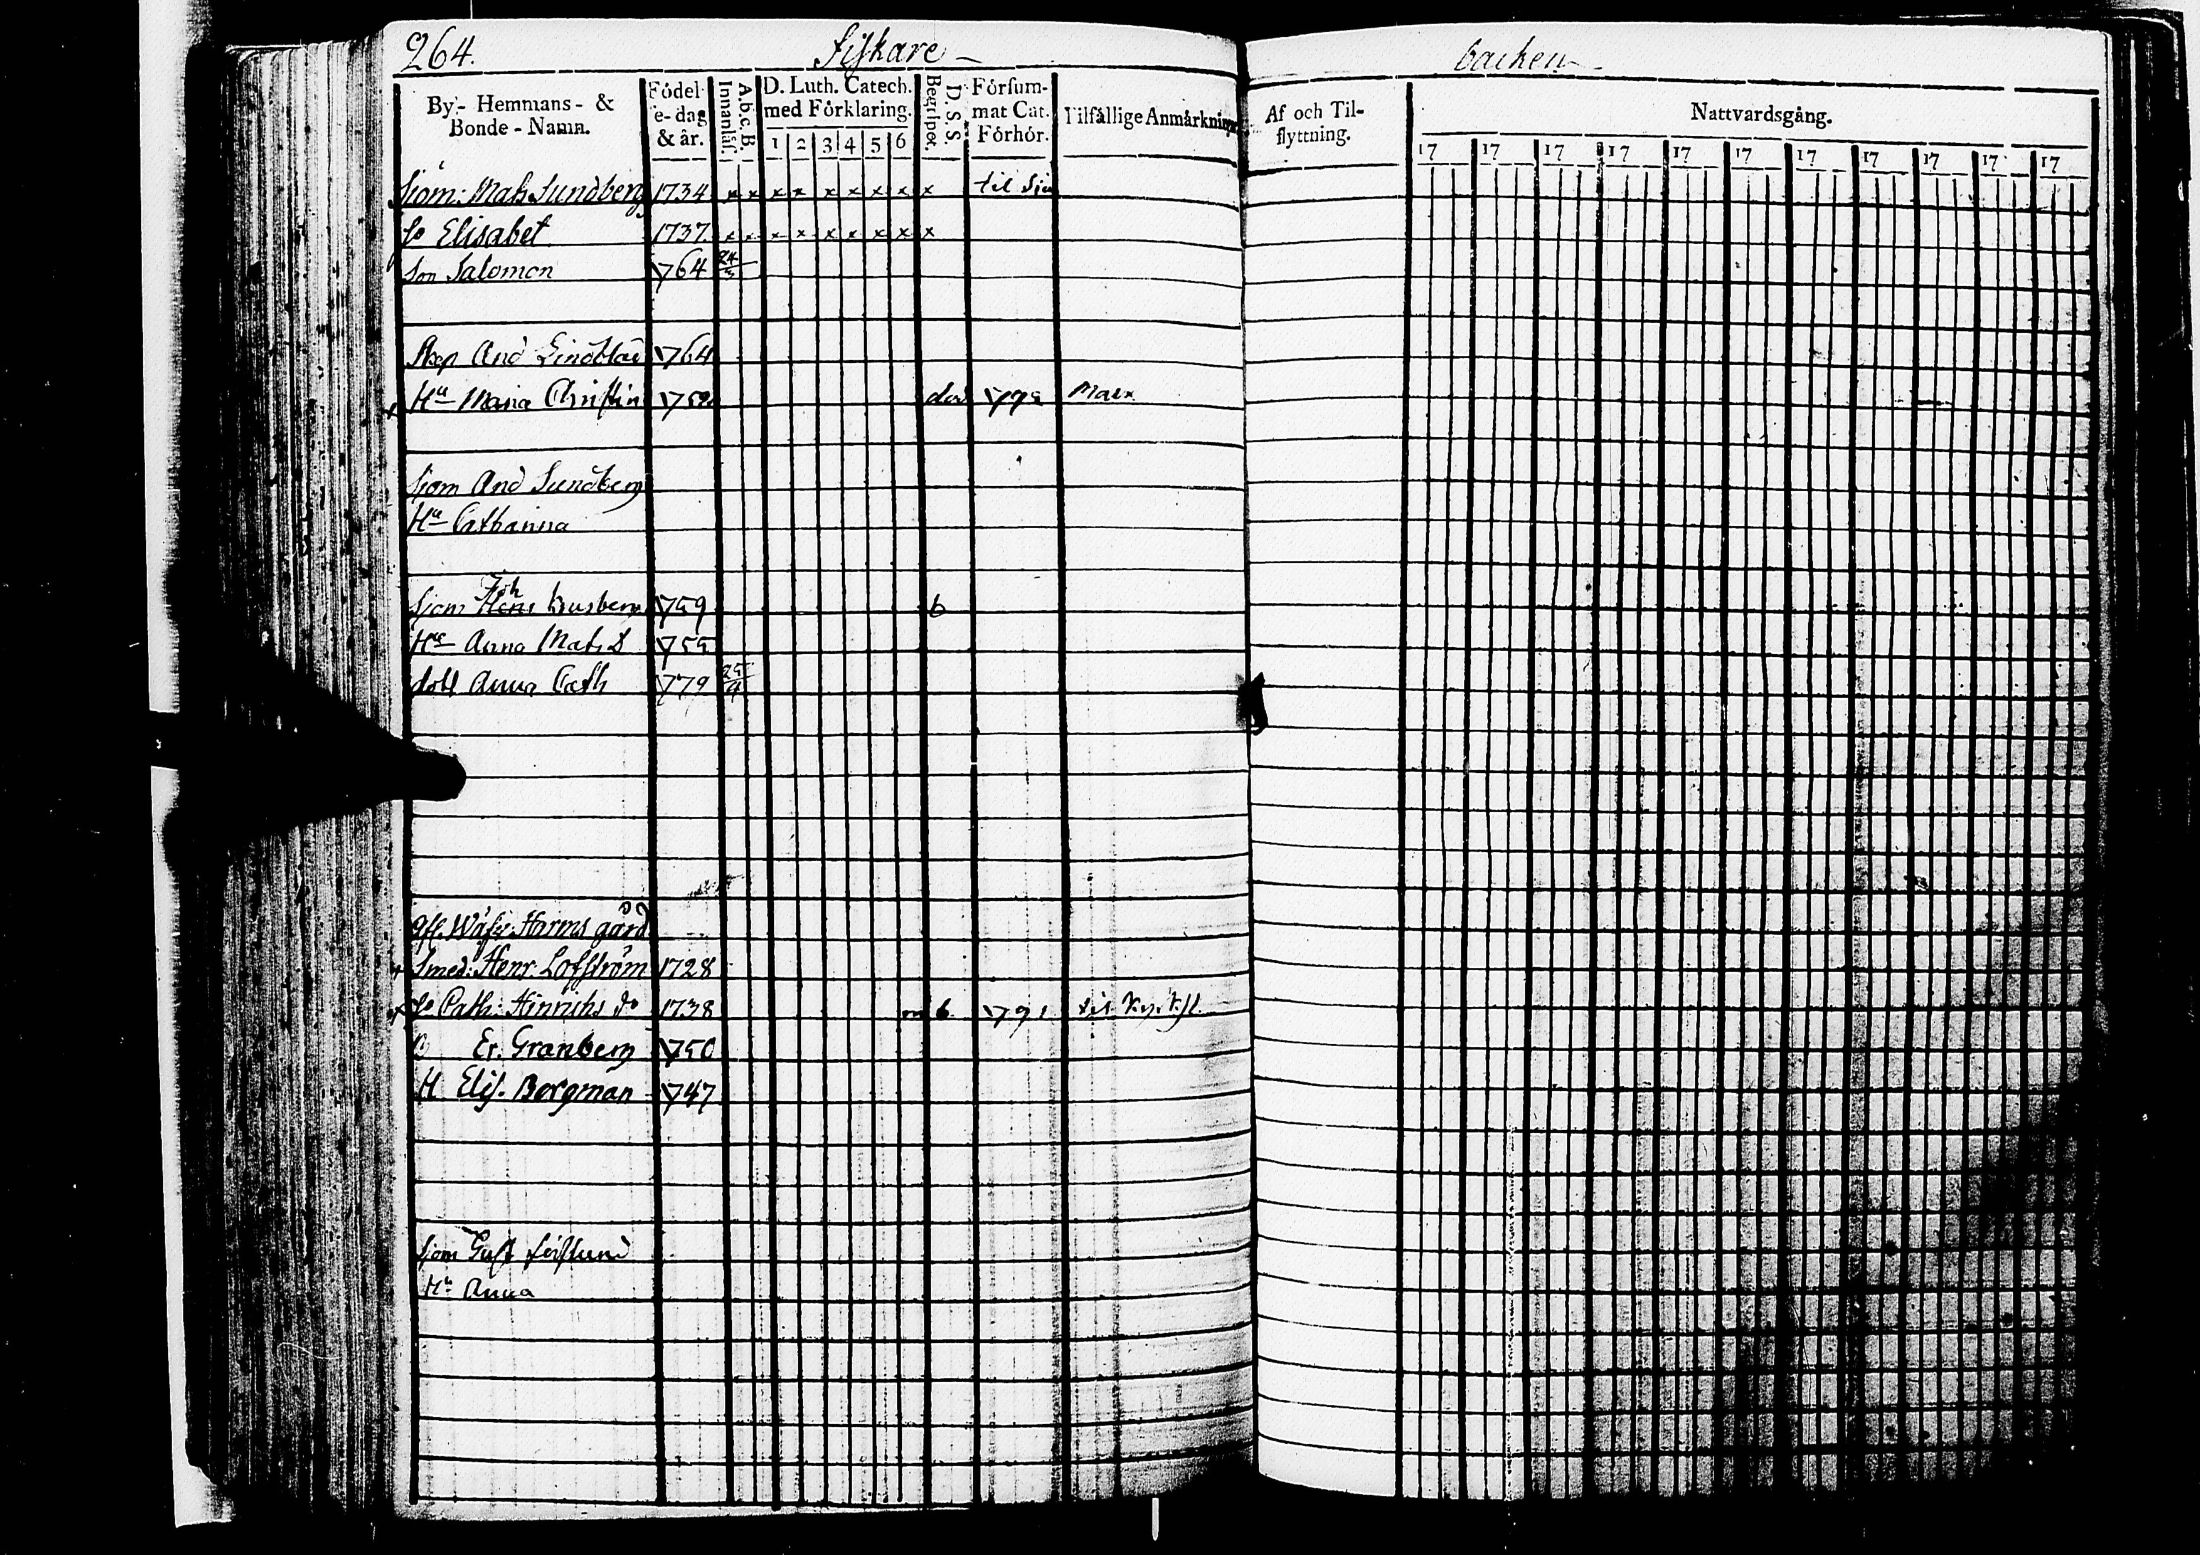 264. Fiskare - backen -
By- Hemmans- & Bonde-Namn. Födelse-dag & år. Innanläs. A.b.c.B. D. Luth. Catech. med Förklaring. 1 2 3 4 5 6 Begrepet. D. S. S. Försummat Cat. Förhör. Tilfällige Anmärkningar Af och Tilflyttning. Nattvardsgång.
17 17 17 17 17 17 17 17 17 17 17
Sjöm: Mats Sundberg 1734 x x x x x x x x x til sjös
H Elisabet 1737 x x x x x x x x x
Son Salomon 1764 24/3
And Lindblad 1764
Hu Maria Christin 175 död
Sjöm And Sundberg
Hu Catharina
Sjöm Joh Busberg 1759 6
Hu Anna Mats D 1755
dott Anna Cath 1779 25/4
Harms gård
Smed: Henr Lofström 1728
Cath: Hinrichs do 1738 6 1791 til
Er. Granberg 1750
H Elis. Borgman 1747
Sjöm Gust
Hu Anna